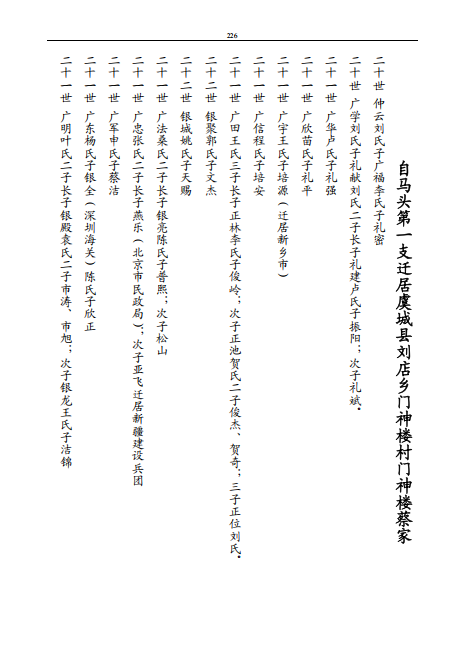 226
自马头第一支迁居虞城县刘店乡门神楼村门神楼蔡家
二十世 仲云刘氏子广福李氏子礼密
二十世 广学刘氏子礼献刘氏二子长子礼建卢氏子振阳；次子礼斌。
二十一世 广华卢氏子礼强
二十一世 广欣苗氏子礼平
二十一世 广宇王氏子培源（迁居新乡市）
二十一世 广信程氏子培安
二十一世 广田王氏三子长子正林李氏子俊岭；次子正池贺氏二子俊杰、贺奇；三子正位刘氏。
二十二世 银聚郭氏子文杰
二十二世 银城姚氏子天赐
二十一世 广法桑氏二子长子银亮陈氏子普熙；次子松山
二十一世 广忠张氏二子长子燕乐（北京市民政局）；次子亚飞迁居新疆建设兵团
二十一世 广军申氏子蔡洁
二十一世 广东杨氏子银全（深圳海关）陈氏子欣正
二十一世 广明叶氏二子长子银殿袁氏二子市涛、市旭；次子银龙王氏子洁锦